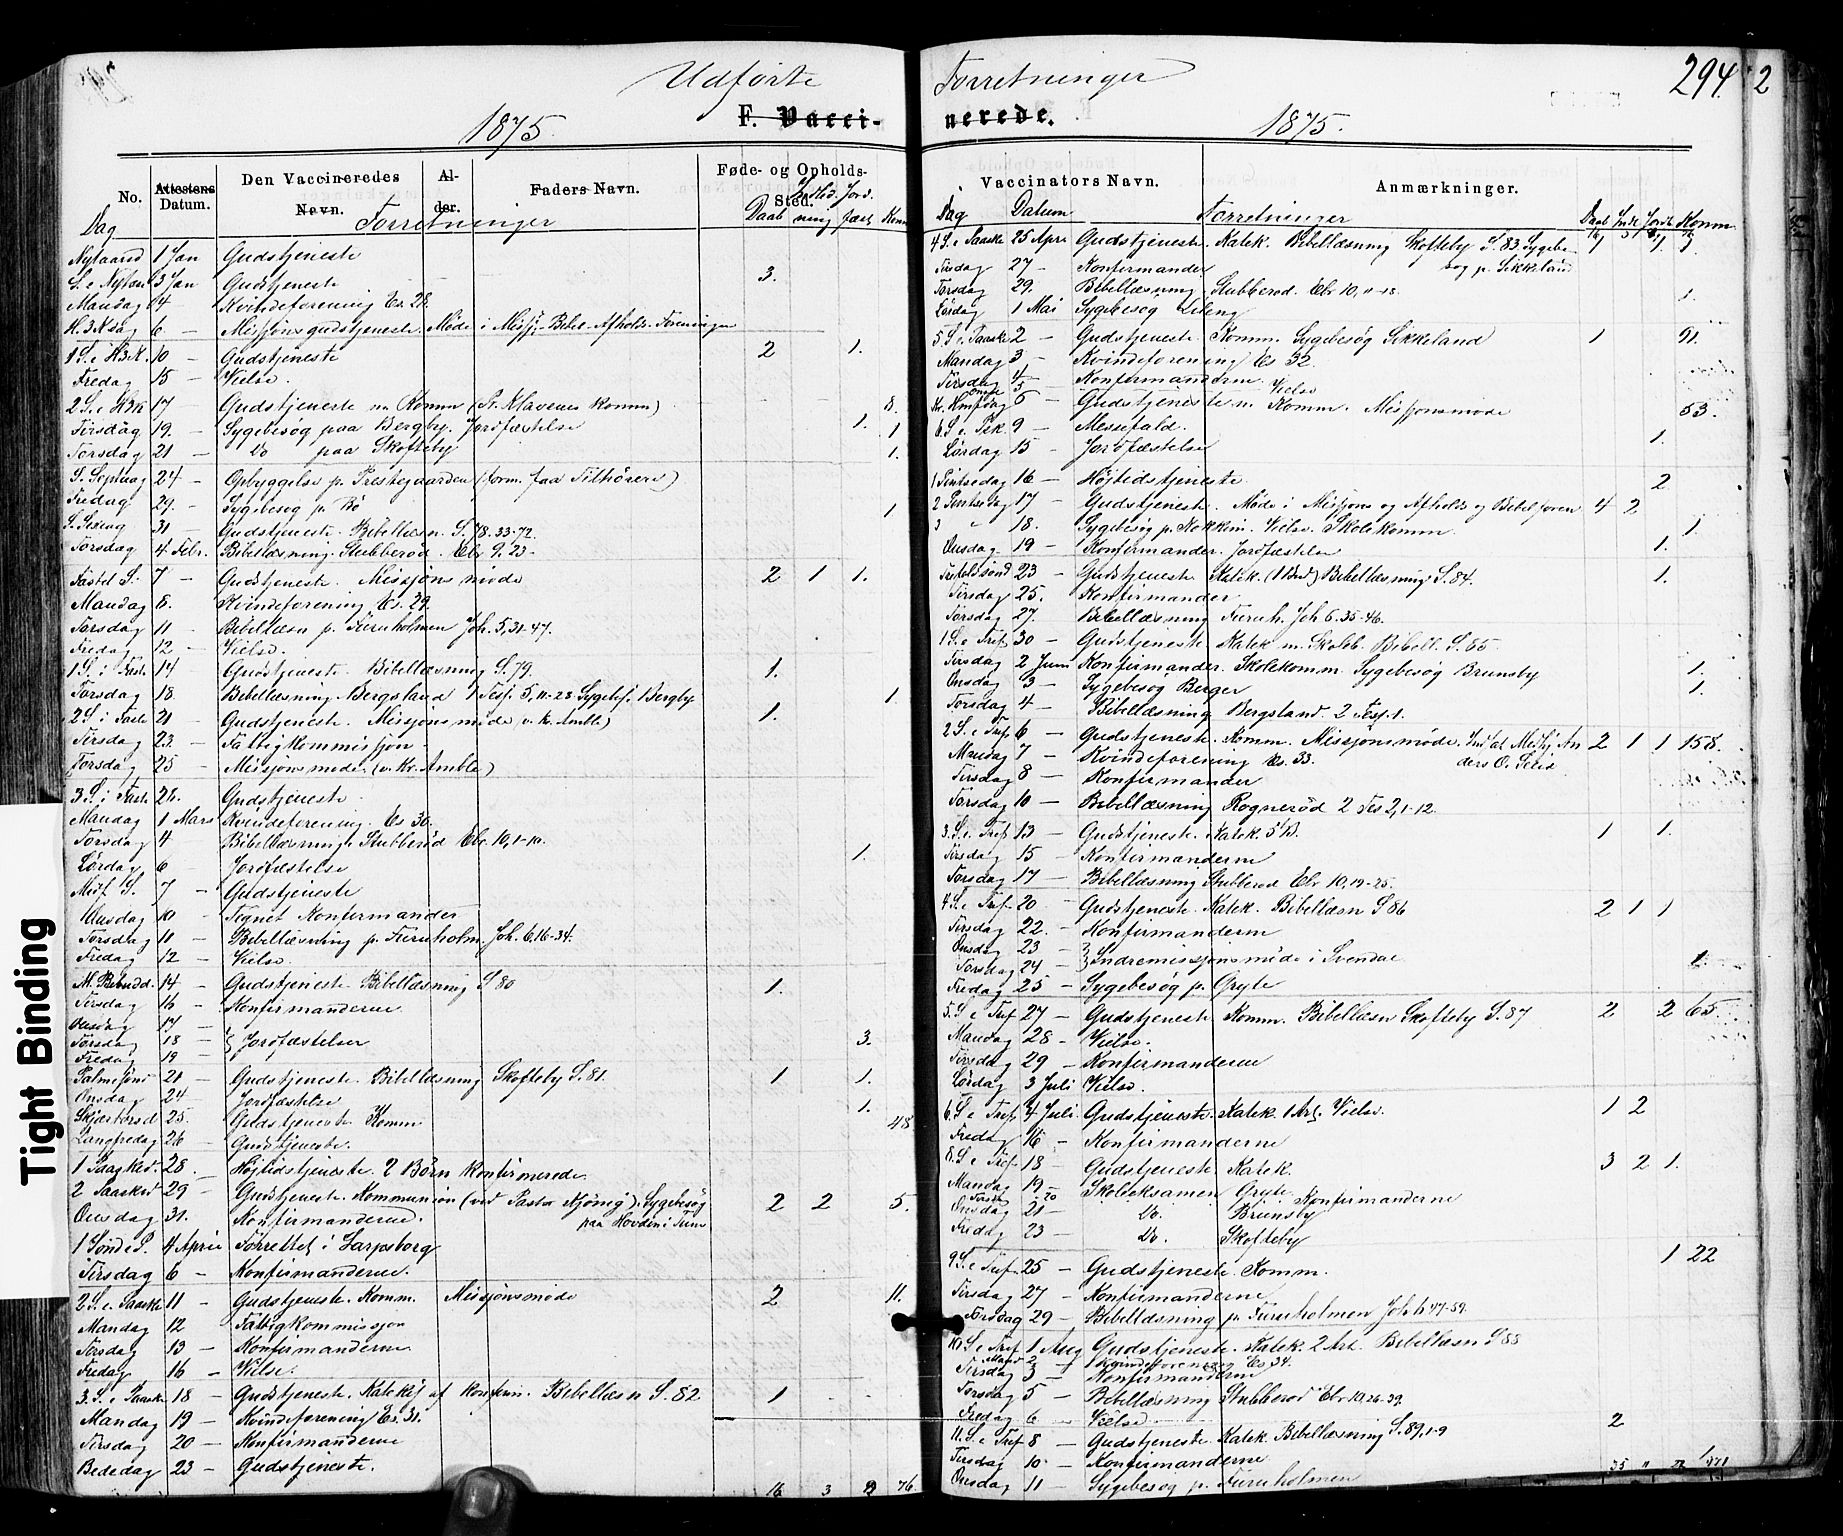 Udførte Forretninger
294.
2
1875.
F. Vacci-
nerede.
1875.
No.
Attestens Datum.
Den Vaccineredes Navn.
Al-der.
Faders Navn.
Føde- og Opholds-Sted.
Dag
Forretninger
Daab
Indled
ning
Jord
fæst
Komm
Nytaarsd 1 Jan Gudstjeneste
S. e Nytaar 3 Jan Gudstjeneste 3.
Mandag 4 Kvindeforening Es. 28.
H. 3 K dag 6 – Missjonsgudstjeneste Møde i Missj. Bibel- Afholds- Foreninger
1 S. e H3K. 10 – Gudstjeneste 2 1.
Fredag 15 – Vielse.
2 S. e H3K 17 Gudstjeneste m Komm (Fr. Klavenes komm) 8.
Tirsdag 19. – Sygebesøg paa Bergby. Jordfæstelse 1. 1
Torsdag 21 – Do paa Skofteby 1.
S. Septuag 24 – Opbyggelse p. Prestegaarden (form. faa Tilhørere)
Fredag 29. – Sygebesøg p. Bø 1
S. Sexag 31 – Gudstjeneste. Bibellæsn. S. 78. 33-72.
Torsdag 4 Febr. Bibellæsning. Stubberød. Ebr 9. 23-
Fastel S. 7 – Gudstjeneste. Missjonsmøde 2 1 1.
Mandag 8. Kvindeforening Es. 29.
Torsdag 11 – Bibellæsn p. Furuholmen Joh. 5, 31-47.
Fredag 12 – Vielse.
1 S. i Fast. 14 Gudstjeneste. Bibellæsning S. 79. 1.
Torsdag 18. Bibellæsning. Bergsland 1 Tess. 5, 11-28 Sygebes. Bergby 1
2 S. i Faste 21 – Gudstjeneste. Missjonsmøde (v. Kr. Amble) 1.
Tirsdag 23. – Fattigkommissjon
Torsdag 25 – Missjonsmøde (v. Kr. Amble)
3 S. i Faste 28. Gudstjeneste
Mandag 1 Mars Kvindeforening. Es 30.
Torsdag 4 – Bibellæsning. Stubberød Ebr. 10, 1-10.
Lørdag 6 – Jordfæstelse 1.
Midf. S. 7 – Gudstjeneste
Onsdag 10 – Tegnet Konfirmander
Torsdag 11 – Bibellæsning p. Furuholm. Joh. 6, 16-34.
Fredag 12 – Vielse.
M. Bebud. 14 – Gudstjeneste Bibellæsning S 80 1.
Tirsdag 16 – Konfirmanderne.
Onsdag 17 –
Torsdag 18 – } Jordfæstelser 3.
Fredag 19 –
Palmesønd 21 – Gudstjeneste. Bibellæsning Skofteby S. 81. 1 1.
Onsdag 24 – Jordfæstelse 1.
Skjærtorsd 25. Gudstjeneste Komm 48.
Langfredag 26 – Gudstjeneste.
1 Paasked. 28. Højtidstjeneste. 2 Børn konfirmerede
2 Paaskd 29 – Gudstjeneste. Kommunion (ved Pastor Kjønig). Sygebesøg 2 2 5.
paa Hovden i Tune
Onsdag 31. Konfirmanderne.
1 Sønd e P. 4 April Forrettet i Sarpsborg
Tirsdag 6 – Konfirmanderne.
2 S. e. Paaske 11 – Gudstjeneste. Komm. Missjonsmøde 2 11.
Mandag 12 Fattigkommissjon
Torsdag 13 – Konfirmanderne
Fredag 16 – Vielse.
3 S. e Paaske 18 – Gudstjeneste. Katekis af konfirm. Bibellæsn S. 82 1
Mandag 19 – Kvindeforening Es. 31.
Tirsdag 20 – Konfirmanderne
Bededag 23 – Gudstjeneste.
16 3 9 76.
Vaccinators Navn.
Anmærkninger.
Dag
Datum
Forretninger
Daab Indl Jordf Komm
16 3 9 76
4 S. e Paaske 25 Apri Gudstjeneste. Katek. Bibellæsning Skofteby S. 83. Sygebe 1 1. 1.
søg p. Sikkeland
Tirsdag 27 – Konfirmander
Torsdag 29. Bibellæsning Stubberød. Ebr 10, 11-18. 1.
Lørdag 1 Mai Sygebesøg Lileng
5 S. e. Paaske 2 – Gudstjeneste Komm. Sygebesøg Sikkeland 1 91.
Mandag 3 – Kvindeforening Es 32.
Tirsdag 4 – Konfirmanderne
Onsd 5 Vielse
Kr. Hmf dag 6 – Gudstjeneste m. Komm. Missjonsmøde 53.
6 S. e. Psk. 9 – Messefald.
Lørdag 15 – Jordfæstelse 1.
1 Pintsedag 16 – Højtidstjeneste 2
2 Pintsedag 17 – Gudstjeneste. Møde i Missjons og Afholds og Bibelforen 4 2
3 " 18. Sygebesøg p. Kokkim. Vielse. Skolekomm. 1.
Onsdag 19 – Konfirmander. Jordfæstelse 1.
Trefoldsønd 23 – Gudstjeneste. Katek. (1 Bud) Bibellæsning. S. 84. 1.
Tirsdag 25. Konfirmander
Torsdag 27. Bibellæsning Furuh. Joh 6. 35-46.
1 S. e Tref 30 – Gudstjeneste Katek m. Skoleb. Bibell. S. 85.
Tirsdag 2 Juni Konfirmander. Skolekomm. Sygebesøg Brunsby 1.
Onsdag 3 – Sygebesøg Berger 1.
Torsdag 4 – Bibellæsning Bergsland. 2 Tess. 1.
2 S. e Tref 6 – Gudstjeneste. Komm. Missjonsmøde. Ind. af Missj. An 2 1 1 158.
ders O. Selid
Mandag 7 – Kvindeforening Es. 33.
Tirsdag 8 – Konfirmander
Torsdag 10 – Bibellæsning Rognerød 2 Tes 2, 1-12.
3. S. e. Tref 13 – Gudstjeneste. Katek. 5 B. 1 1.
Tirsdag 15 – Konfirmanderne
Torsdag 17 – Bibellæsning Stubberød Ebr 10, 19-25.
4. S. e Tref 20 – Gudstjeneste. Katek. Bibellæsn S 86 2 1 1
Tirsdag 22. – Konfirmanderne
Onsdag 23 –
Torsdag 24 – } Indremissjonsmøde i Svendal
Fredag 25 – Sygebesøg p. Gryte 1.
5. S. e Tref 27 – Gudstjeneste Komm. Bibellæsn Skofteby S. 87 2 2 65
Mandag 28 – Vielse.
Tirsdag 29 – Konfirmanderne
Lørdag 3 Juli Vielse.
6. S. e Tref 4 Juli. Gudstjeneste. Katek. 1 Art. Vielse. 1 2
Fredag 16 – Konfirmanderne
8. S. e Tref 18 – Gudstjeneste Katek. 3 2 1.
Mandag 19 – Skoleeksamen Gryte.
Tirsd 20 Konfirmanderne
Onsdag 21 – Do. Brunsby
Fredag 23 – Do. Skofteby
9 S. e Tref 25 – Gudstjeneste. Komm. 1 22
Tirsdag 27 – Konfirmanderne
Torsdag 29 – Bibellæsning p. Furuholmen Joh 6 47-59.
10. S. e Tref 1 Aug Gudstjeneste. Katek. 2 Art. Bibellæsn S 88
Mand 2 – Kvindeforeningen Es. 34.
Tirsdag 3 – Konfirmanderne
Torsdag 5 – Bibellæsning Stubberød Ebr 10, 26-39.
Fredag 6 – Vielse
11. S. e Tref 8 – Gudstjeneste. Katek. Bibellæsning S. 89, 1-9 2
Tirsdag 10 – Konfirmanderne
Onsdag 11 – Sygebesøg p. Furuholmen 1
35 11 23 471
Tight Binding